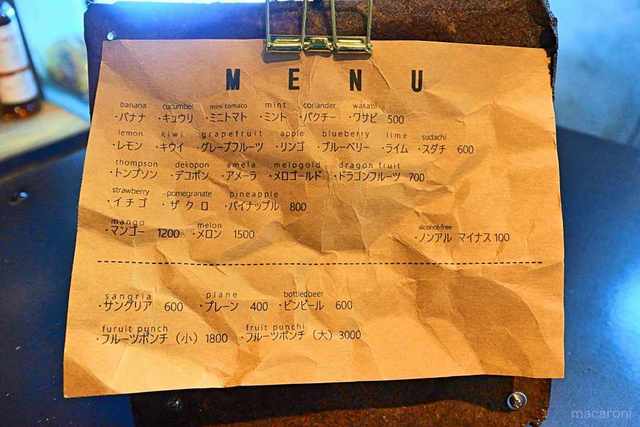 MENU
banana cucumber mini tomaco mint coriander wasabi
・バナナ ・キュウリ ・ミニトマト ・ミント ・パクチー ・ワサビ 500
lemon kiwi grapefruit apple blueberry lime sudachi
・レモン ・キウイ ・グレープフルーツ ・リンゴ ・ブルーベリー ・ライム ・スダチ 600
thompson dekopon amela melogold dragon fruit
・トンプソン ・デコポン ・アメーラ ・メロゴールド ・ドラゴンフルーツ 700
strawberry pomegranate pineapple
・イチゴ ・ザクロ ・パイナップル 800
mango melon alcohol-free
・マンゴー 1200 ・メロン 1500 ・ノンアル マイナス100
sangria plane bottledbeer
・サングリア 600 ・プレーン 400 ・ビンビール 600
furuit punch fruit punchi
・フルーツポンチ（小）1800 ・フルーツポンチ（大）3000
macaroni